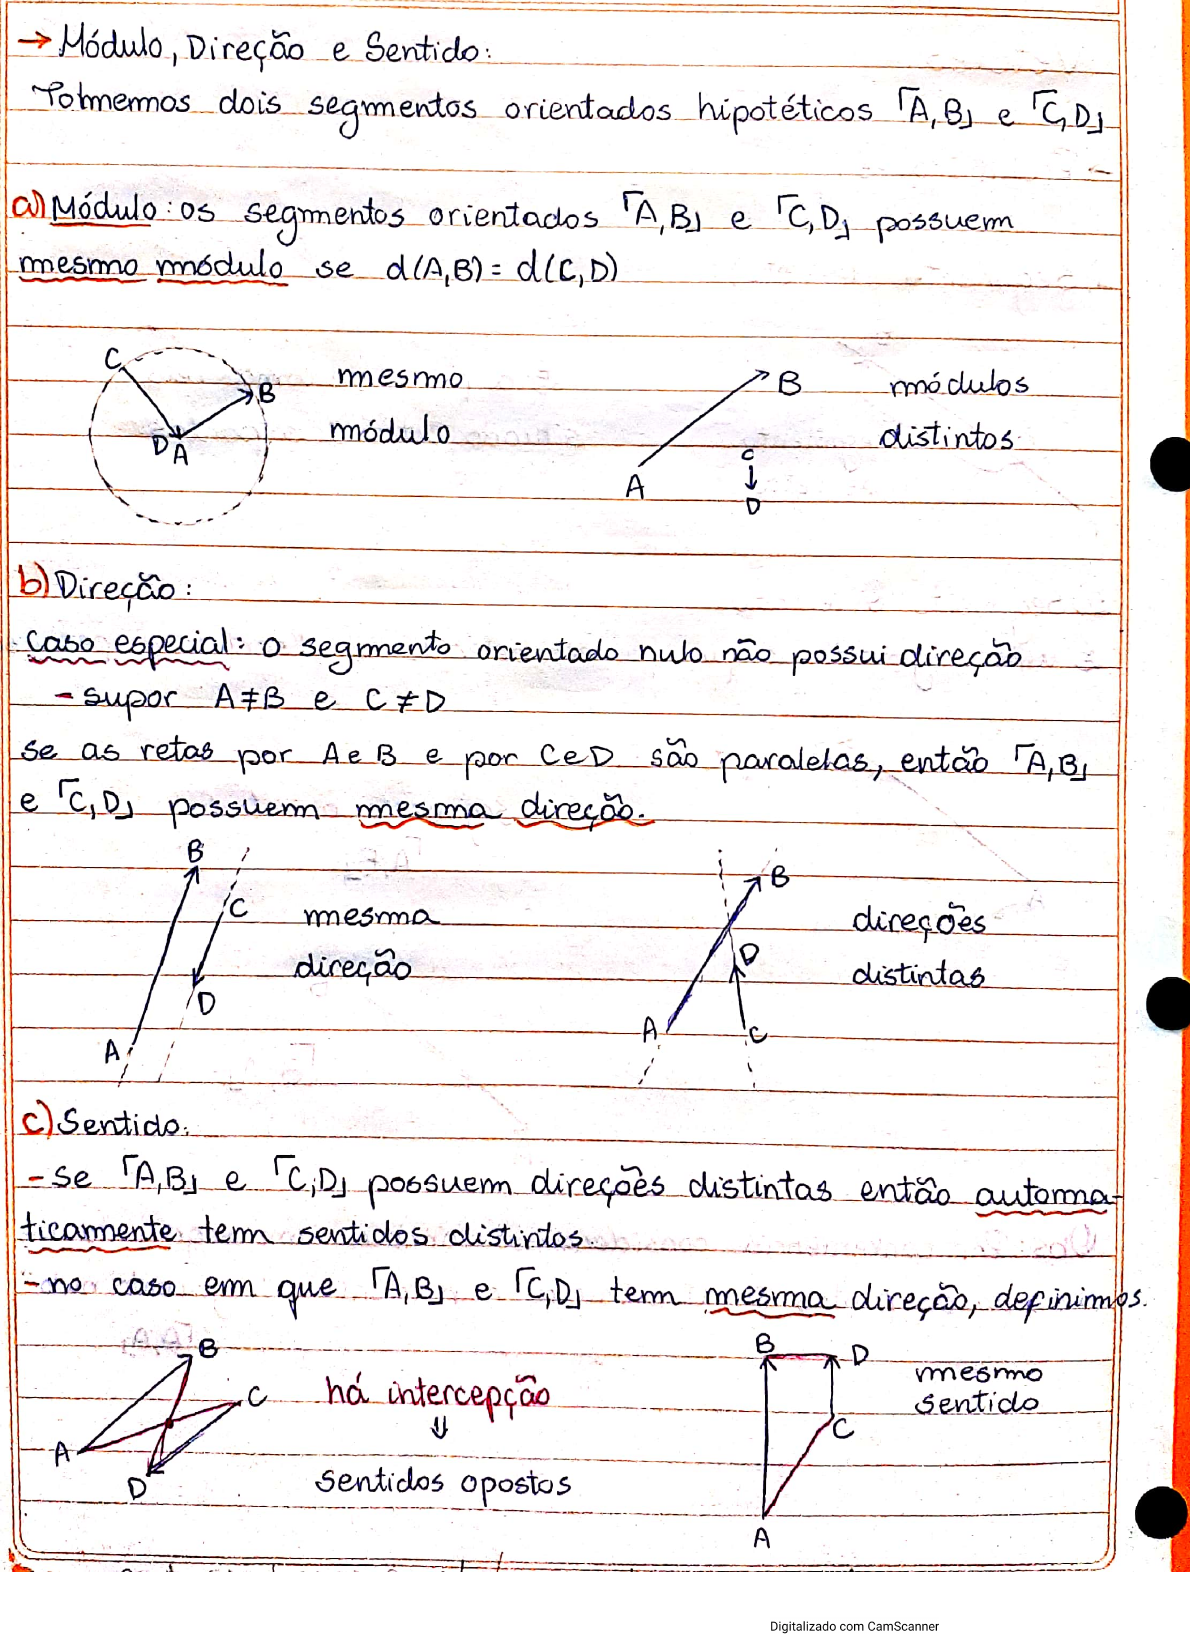 → Módulo, Direção e Sentido:
Tomemos dois segmentos orientados hipotéticos ⌈A,B⌋ e ⌈C,D⌋
a) Módulo: os segmentos orientados ⌈A,B⌋ e ⌈C,D⌋ possuem
mesmo módulo se d(A,B) = d(C,D)
C
B
D A
mesmo
módulo
B
A
C
D
módulos
distintos
b) Direção:
caso especial: o segmento orientado nulo não possui direção
- supor A≠B e C≠D
se as retas por A e B e por C e D são paralelas, então ⌈A,B⌋
e ⌈C,D⌋ possuem mesma direção.
B
C
D
A
mesma
direção
B
D
A
C
direções
distintas
c) Sentido:
- se ⌈A,B⌋ e ⌈C,D⌋ possuem direções distintas então automa-
ticamente tem sentidos distintos
- no caso em que ⌈A,B⌋ e ⌈C,D⌋ tem mesma direção, definimos.
B
C
A
D
há intercepção
⇓
sentidos opostos
B
D
C
A
mesmo
sentido
Digitalizado com CamScanner